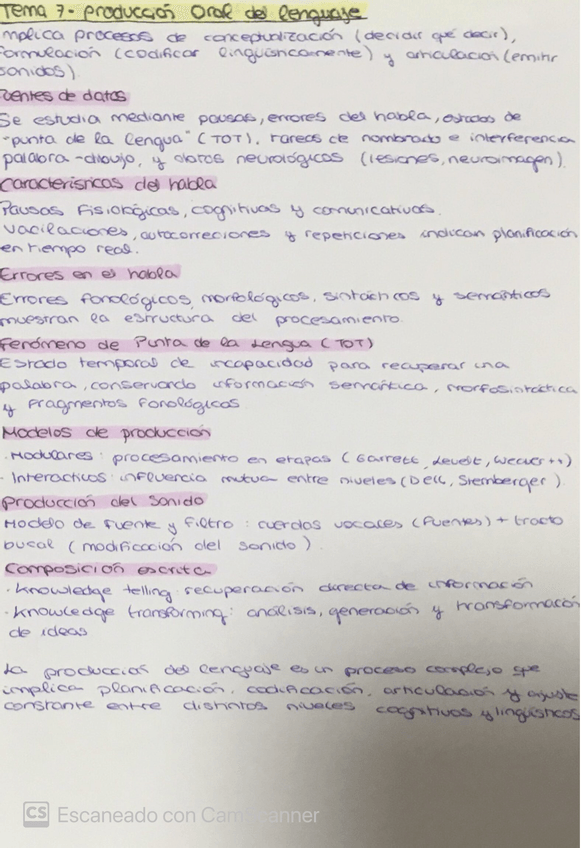 Tema 7- Producción Oral del lenguaje
mplica procesos de conceptualización (decidir qué decir),
formulación (codificar lingüísticamente) y articulación (emitir
sonidos).
Fuentes de datos
Se estudia mediante pausas, errores del habla, estados de
"punta de la lengua" (TOT), tareas de nombrado e interferencia
palabra-dibujo, y datos neurológicos (lesiones, neuroimagen).
Características del habla
Pausas fisiológicas, cognitivas y comunicativas.
Vacilaciones, autocorreciones y repeticiones indican planificación
en tiempo real.
Errores en el habla
Errores fonológicos, morfológicos, sintácticos y semánticos
muestran la estructura del procesamiento.
Fenómeno de Punta de la Lengua (TOT)
Estado temporal de incapacidad para recuperar una
palabra, conservando información semántica, morfosintáctica
y fragmentos fonológicos
Modelos de producción
· Modulares: procesamiento en etapas (Garrett, Levelt, Weaver++)
· Interactivos: influencia mutua entre niveles (Dell, Stemberger).
Producción del Sonido
Modelo de fuente y filtro: cuerdas vocales (fuentes) + tracto
bucal (modificación del sonido).
Composición escrita
· Knowledge telling: recuperación directa de información
· Knowledge transforming: análisis, generación y transformación
de ideas
La producción del lenguaje es un proceso complejo que
implica planificación, codificación, articulación y ajuste
constante entre distintos niveles cognitivos y lingüísticos
CS Escaneado con CamScanner